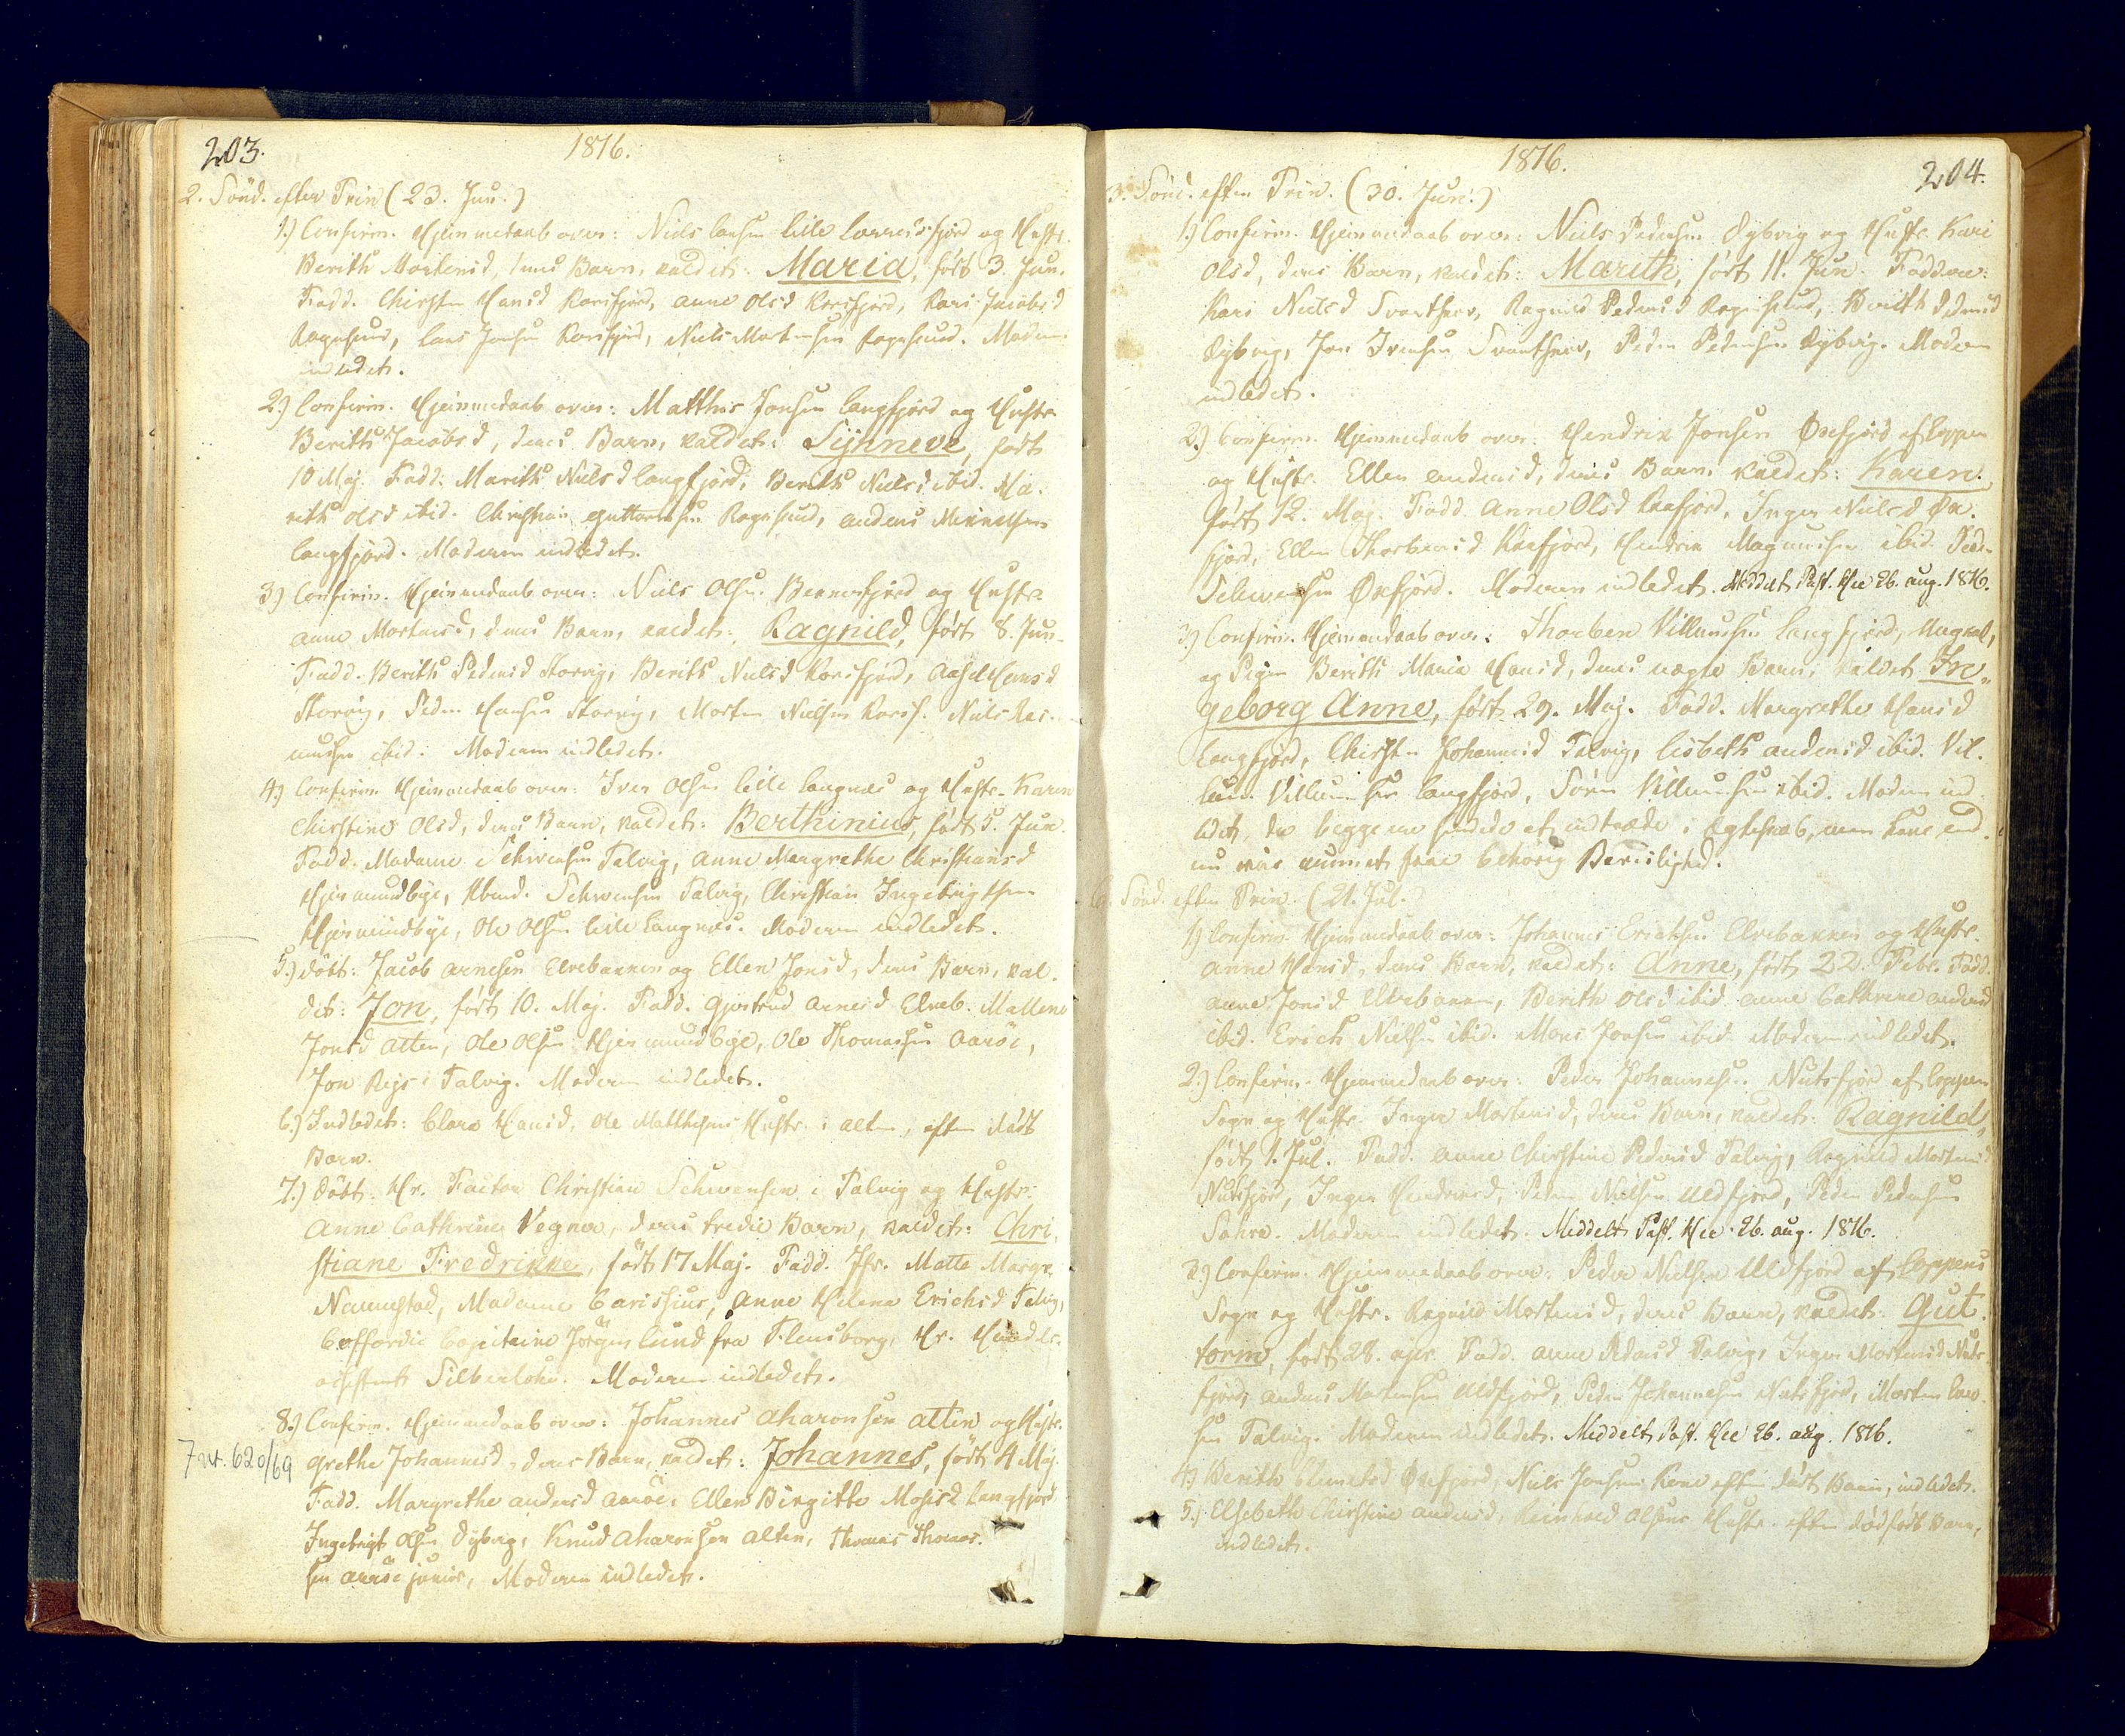 203.
1816.
2. Sönd. efter Trin (23. Jun.)
1.) Confirm. Hjemmedaab over: Niels Larsen lille Lerresfjord og Hustr.
Berith Mortensd, deres Barn, kaldet: Maria, født 3. Jun.
Fadd. Chirsten Hansd Korsfjord, Anne Olsd Korsfjord, Kari Jacobsd
Rognsund, Lars Jonsen Korsfjord, Niels Mortensen Rognsund. Moderen
indledet.
2.) Confirm. Hjemmedaab over: Matthis Jonsen Langfjord og Hustr.
Berith Jacobsd, deres Barn, kaldet: Sÿnneve, født
10 Maj. Fadd: Marith Nielsd Langfjord, Berith Nielsd ibid. Ma-
rith Olsd ibid. Christian Guttormsen Rognsund, Anders
Langfjord. Moderen indledet.
3) Confirm. Hjemmedaab over: Niels Olsen Beenesfjord og Hustr.
Anne Mortensd, deres Barn, kaldet: Ragnild, født 8. Jun.
Fadd. Berith Pedersd Storvig, Berith Nielsd Korsfjord, Hansd
Storvig, Peder Hansen Storvig, Morten Nielsen Korsf. Niels Ras-
mussen ibid. Moderen indledet.
4.) Confirm. Hjemmedaab over: Iver Olsen lille Langnæs og Hustr. Karen
Chirstine Olsd, deres Barn, kaldet: Berthinius, født 5. Jun.
Fadd. Madame Schwensen Talvig, Anne Margrethe Christiansd
Hjermundbye, Schwensen Talvig, Christian Ingebrigtsen
Hjermundbye, Ole Olsen lille Langnæs. Moderen indledet.
5.) Döbt: Jacob Arnesen Elvebakken og Ellen Jonsd, deres Barn, kal-
det: Jon, født 10. Maj. Fadd. Gjertrud Arnesd Elveb. Mallene
Jonsd Alten, Ole Olsen Hjermundbye, Ole Thomasen Aarøe,
Jon Talvig. Moderen indledet.
6.) Indledet: Clara Hansd, Ole Matthisens Hustr. i Alten, efter dødt
Barn.
7.) Döbt. Hr. Factor Christian Schwensen i Talvig og Hustr.
Anne Cathrine Vegner, deres tredie Barn, kaldet: Chri-
stiane Fredrikke, født 17 Maj. Fadd. Jfr. Matte Margr.
Naumestad, Madame Carisius, Anne Helena Erichsd Talvig,
Coffardie Capitaine Jörgen Lund fra Flensborg, Hr. Handels-
assistent Silberlohn. Moderen indledet.
8.) Confirm. Hjemmedaab over: Johannes Aharonsen Alten og Hustr.
7 nr. 620/69
Grethe Johannesd, deres Barn, kaldet: Johannes, født 4 Maj.
Fadd. Margrethe Andersd Aarøe, Ellen Birgitte Mosisd Langfjord
Ingebrigt Olsen Dybvig, Knud Aharonsen Alten, Thomas Thomas-
sen Aarøe junior, Moderen indledet.
1816.
204.
3. Sönd. efter Trin. (30. Jun.)
1.) Confirm. Hjemmedaab over: Niels Pedersen Dybvig og Hustr. Kari
Olsd, deres Barn, kaldet: Marith, født 11. Jun. Faddere:
Kari Nielsd Svartnes, Ragnild Pedersd Rognsund, Berith Pedersd
Dybvig, Jon Iversen Svartnes, Peder Pedersen Dybvig. Moderen
indledet.
2.) Confirm. Hjemmedaab over: Hendrik Jonsen Øxfjord af Loppen
og Hustr. Ellen Andersd, deres Barn, kaldet: Karen.
født 12. Maj. Fadd. Anne Olsd Kaafjord, Inger Nielsd Øx-
fjord, Ellen Thorbensd Kaafjord, Hendrik Magnusen ibid. Peder
Schwensen Øxfjord. Moderen indledet. Meddelt Past. Hee 26. aug. 1816.
3.) Confirm. Hjemmedaab over: Thorben Villumsen Langfjord, Ungkarl,
og Pigen Berith Maria Hansd, deres uægte Barn, kaldet In-
geborg Anne, født 29. Maj. Fadd. Margrethe Hansd
Langfjord, Chirsten Johannesd Talvig, Lisbeth Andersd ibid. Vil-
lum Villumsen Langfjord, Sören Villumsen ibid. Moderen ind-
ledet, da begge ere sindede at indtræde i Ægteskab, men have end-
nu ikke kunnet faae behørig Bevilighed.
6. Sönd. efter Trin. (21. Jul.
1) Confirm. Hjemmedaab over: Johannes Erichsen Elvebakken og Hustr.
Anne Hansd, deres Barn, kaldet: Anne, født 22. Febr. Fadd.
Anne Jonsd Elvebakken, Berith Olsd ibid. Anne Cathrine Andersd
ibid. Erich Nielsen ibid. Mons Jonsen ibid. Moderen indledet.
2.) Confirm. Hjemmedaab over: Peder Johannesen Nuvsfjord af Loppens
Sogn og Hustr. Inger Mortensd, deres Barn, kaldet: Ragnild,
født 1. Jul. Fadd. Anne Chirstine Pedersd Talvig, Ragnild Mortensd
Nuvsfjord, Inger Hendriksd, Peder Nielsen Ulsfjord, Peder Pedersen
Moderen indledet. Meddelt Past. Hee 26. aug. 1816.
3.) Confirm. Hjemmedaab over: Peder Nielsen Ulsfjord af Loppens
Sogn og Hustr. Ragnild Mortensd, deres Barn, kaldet: Gut-
torm, født 28. Apr. Fadd. Anne Pedersd Talvig, Inger Mortensd Nuvs-
fjord, Anders Mortensen Ulsfjord, Peder Johannesen Nuvsfjord, Morten Lar-
sen Talvig. Moderen indledet. Meddelt Past. Hee 26. aug. 1816.
4.) Berith Clemetsd Øxfjord, Niels Jonsens Kone efter dødt Barn, indledet.
5.) Elsebeth Chirstine Andersd, Reinhold Olsens Hustr. efter dødfødt Barn,
indledet.